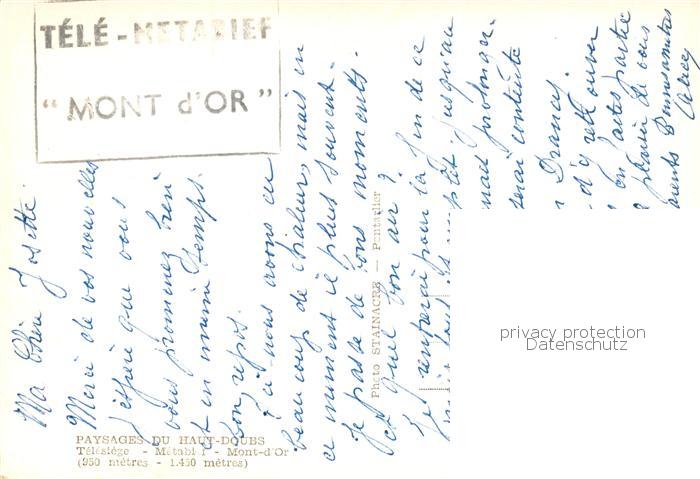 TÉLÉ-METABIEF
"MONT d'OR"
Ma Chère Josette
Merci de vos nouvelles
j'espère que vous
vous promenez bien
et en même temps
bon repos.
Ici nous avons eu
beaucoup de chaleur, mais en
ce moment il pleut souvent.
Je passe de bons moments.
et quel bon air ?
Je rentrerai pour la fin de ce
jusqu'au
prolonger.
serai contente
Drancy.
d'y retrouver
en partie
plaisir de vous
Photo STAINACRE — Pontarlier
PAYSAGES DU HAUT-DOUBS
Télésiège - Métabief - Mont-d'Or
(950 mètres - 1.450 mètres)
privacy protection
Datenschutz